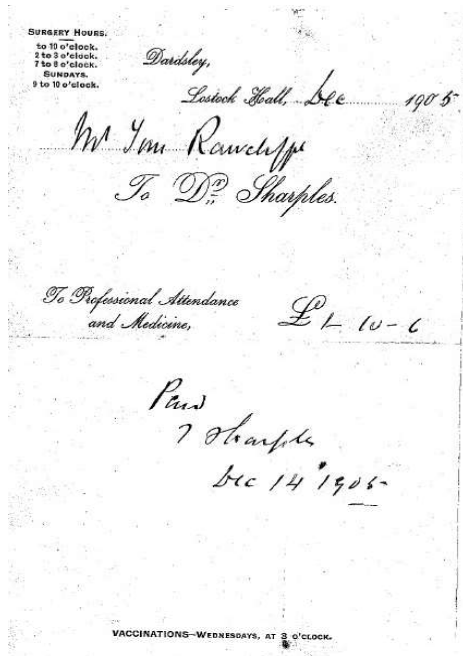 SURGERY HOURS.
to 10 o'clock.
2 to 3 o'clock.
7 to 8 o'clock.
SUNDAYS.
9 to 10 o'clock.
Dardsley,
Lostock Hall, Dec 1905
Mr Tom Rawcliffe
To Dr. Sharples.
To Professional Attendance
and Medicine,
£1-10-6
Paid
T Sharples
Dec 14 1905
VACCINATIONS—WEDNESDAYS, AT 3 O'CLOCK.